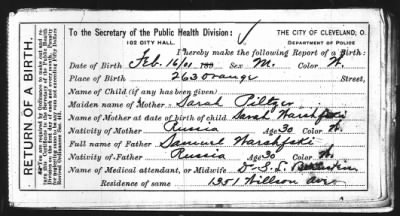 RETURN OF A BIRTH.
To the Secretary of the Public Health Division:
102 CITY HALL.
THE CITY OF CLEVELAND, O.
DEPARTMENT OF POLICE
I hereby make the following Report of a Birth:
Date of Birth Feb. 16/01 189 Sex M. Color W.
Place of Birth 263 Orange Street,
Name of Child (if any has been given)
Maiden name of Mother Sarah Piltzer
Name of Mother at date of birth Sarah Warshfski
Nativity of Mother Russia Age 30 Color W.
Full name of Father Samuel Warshfski
Nativity of Father Russia Age 30 Color W.
Name of Medical attendant, or Midwife Dr S. L. Bernstein
Residence of same 1351 Willson Ave